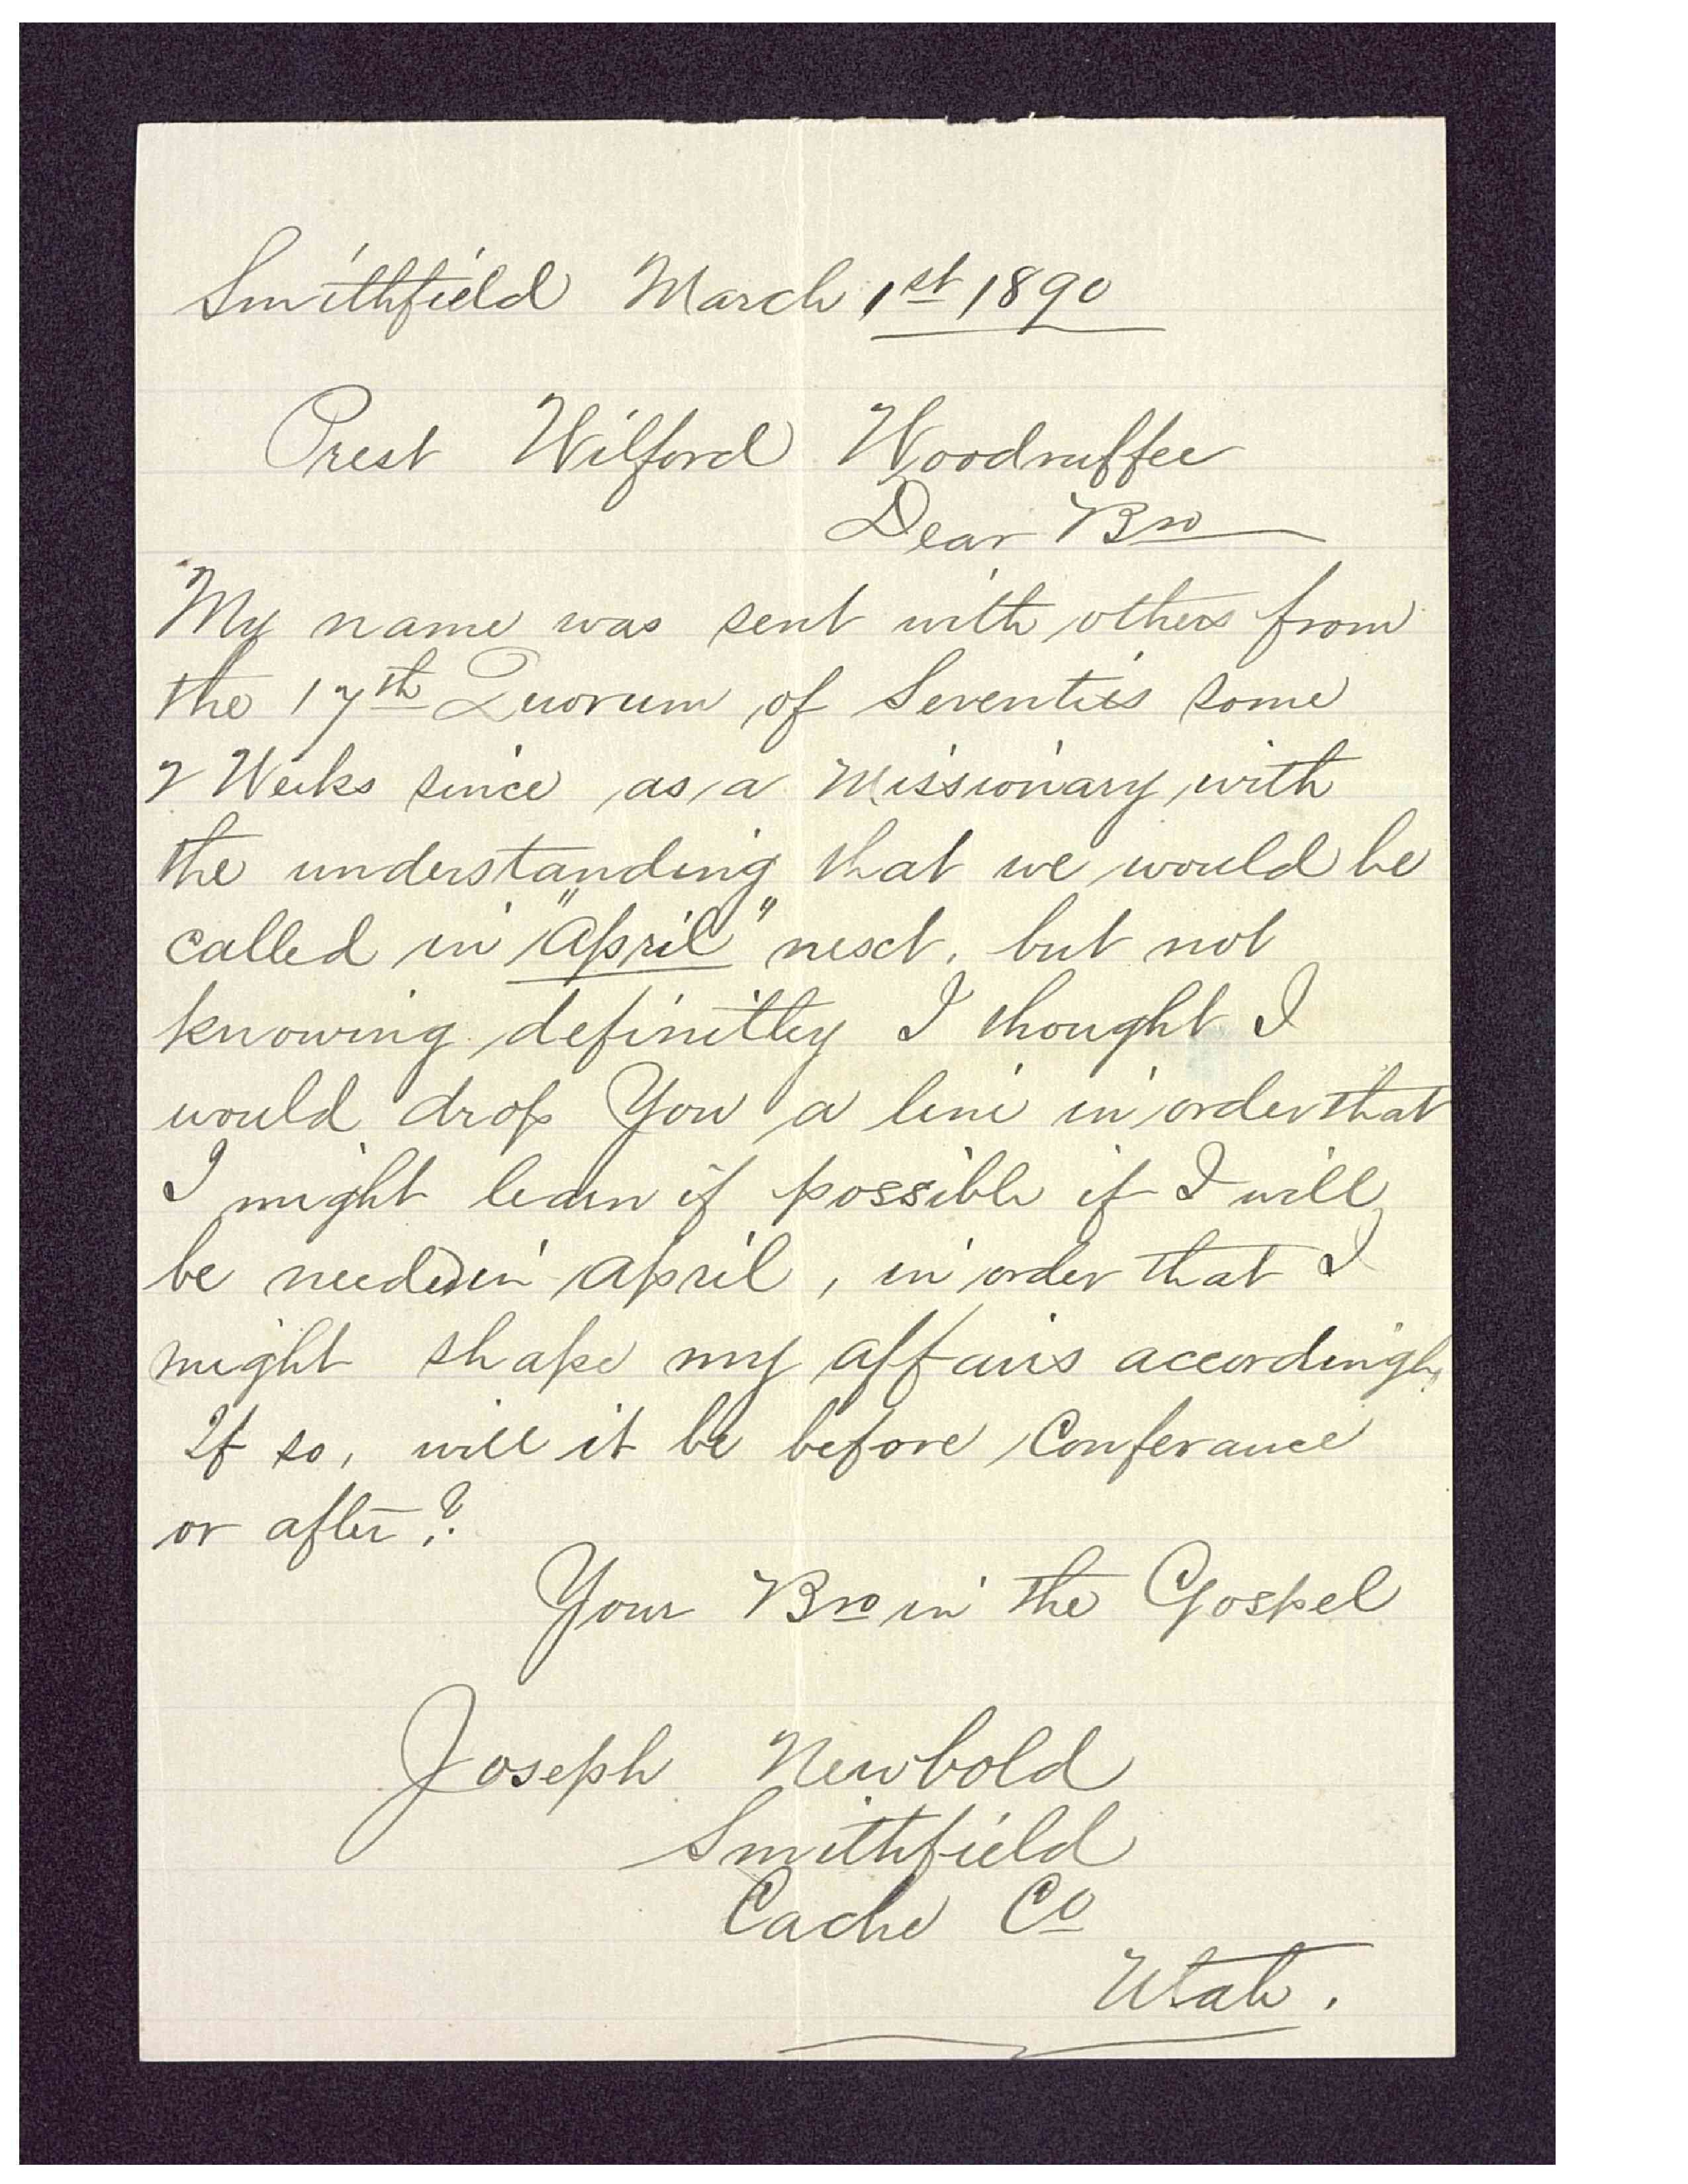 Smithfield March 1st 1890
Prest Wilford Woodruffee
Dear Bro
My name was sent with others from
the 17th Quorum of Seventies some
2 Weeks since as a Missionary with
the understanding that we would be
called in "April" nesct, but not
knowing definitley I thought I
would drop You a line in order that
I might learn if possible if I will
be needed in April, in order that I
might shape my affairs accordingly,
If so, will it be before Conferance
or after?
Your Bro in the Gospel
Joseph Newbold
Smithfield
Cache Co
Utah.